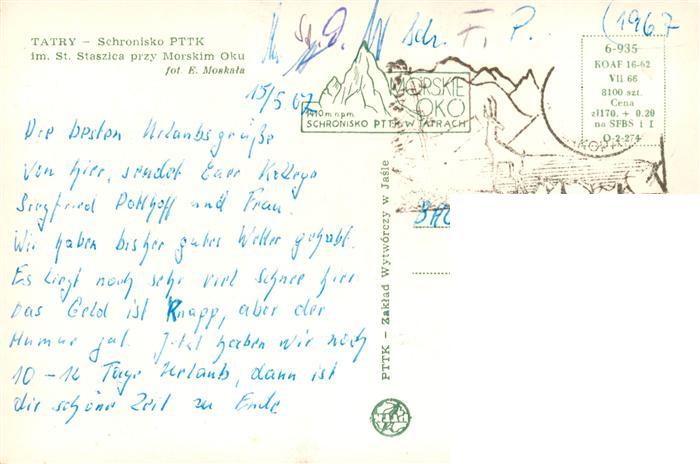 TATRY – Schronisko PTTK
im. St. Staszica przy Morskim Oku
fot. E. Moskała
(1967
6-935
KOAF 16-62
VII 66
8100 szt.
Cena
zł 1170. + 0.20
na SFBS i I
O-2-274
MORSKIE
OKO
1410 m n pm
SCHRONISKO PTTK W TATRACH
15/5 67
Die besten Urlaubsgrüße
von hier, sendet Euer Kollege
Siegfried Potthoff und Frau.
Wir haben bisher gutes Wetter gehabt.
Es liegt noch sehr viel Schnee hier
Das Geld ist Knapp, aber der
Humor gut. Jetzt haben wir noch
10 – 12 Tage Urlaub, dann ist
die schöne Zeit zu Ende
PTTK – Zakład Wytwórczy w Jaśle